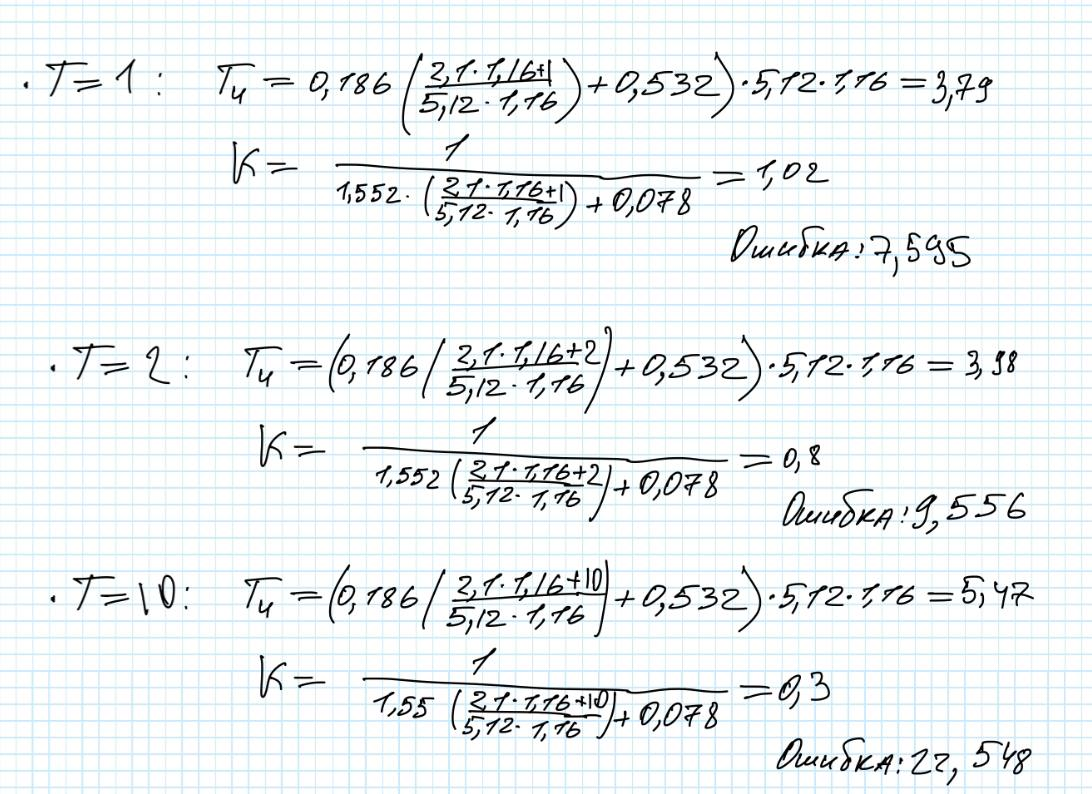 · T = 1 : Tи = 0,186 ((2,1 · 1,16+1)/(5,12 · 1,16)) + 0,532) · 5,12 · 1,16 = 3,79
K = 1/(1,552 · ((2,1 · 1,16+1)/(5,12 · 1,16)) + 0,078) = 1,02
Ошибка: 7,595
· T = 2 : Tи = (0,186 ((2,1 · 1,16+2)/(5,12 · 1,16)) + 0,532) · 5,12 · 1,16 = 3,98
K = 1/(1,552 ((2,1 · 1,16+2)/(5,12 · 1,16)) + 0,078) = 0,8
Ошибка: 9,556
· T = 10 : Tи = (0,186 ((2,1 · 1,16+10)/(5,12 · 1,16)) + 0,532) · 5,12 · 1,16 = 5,47
K = 1/(1,55 ((2,1 · 1,16+10)/(5,12 · 1,16)) + 0,078) = 0,3
Ошибка: 22, 548